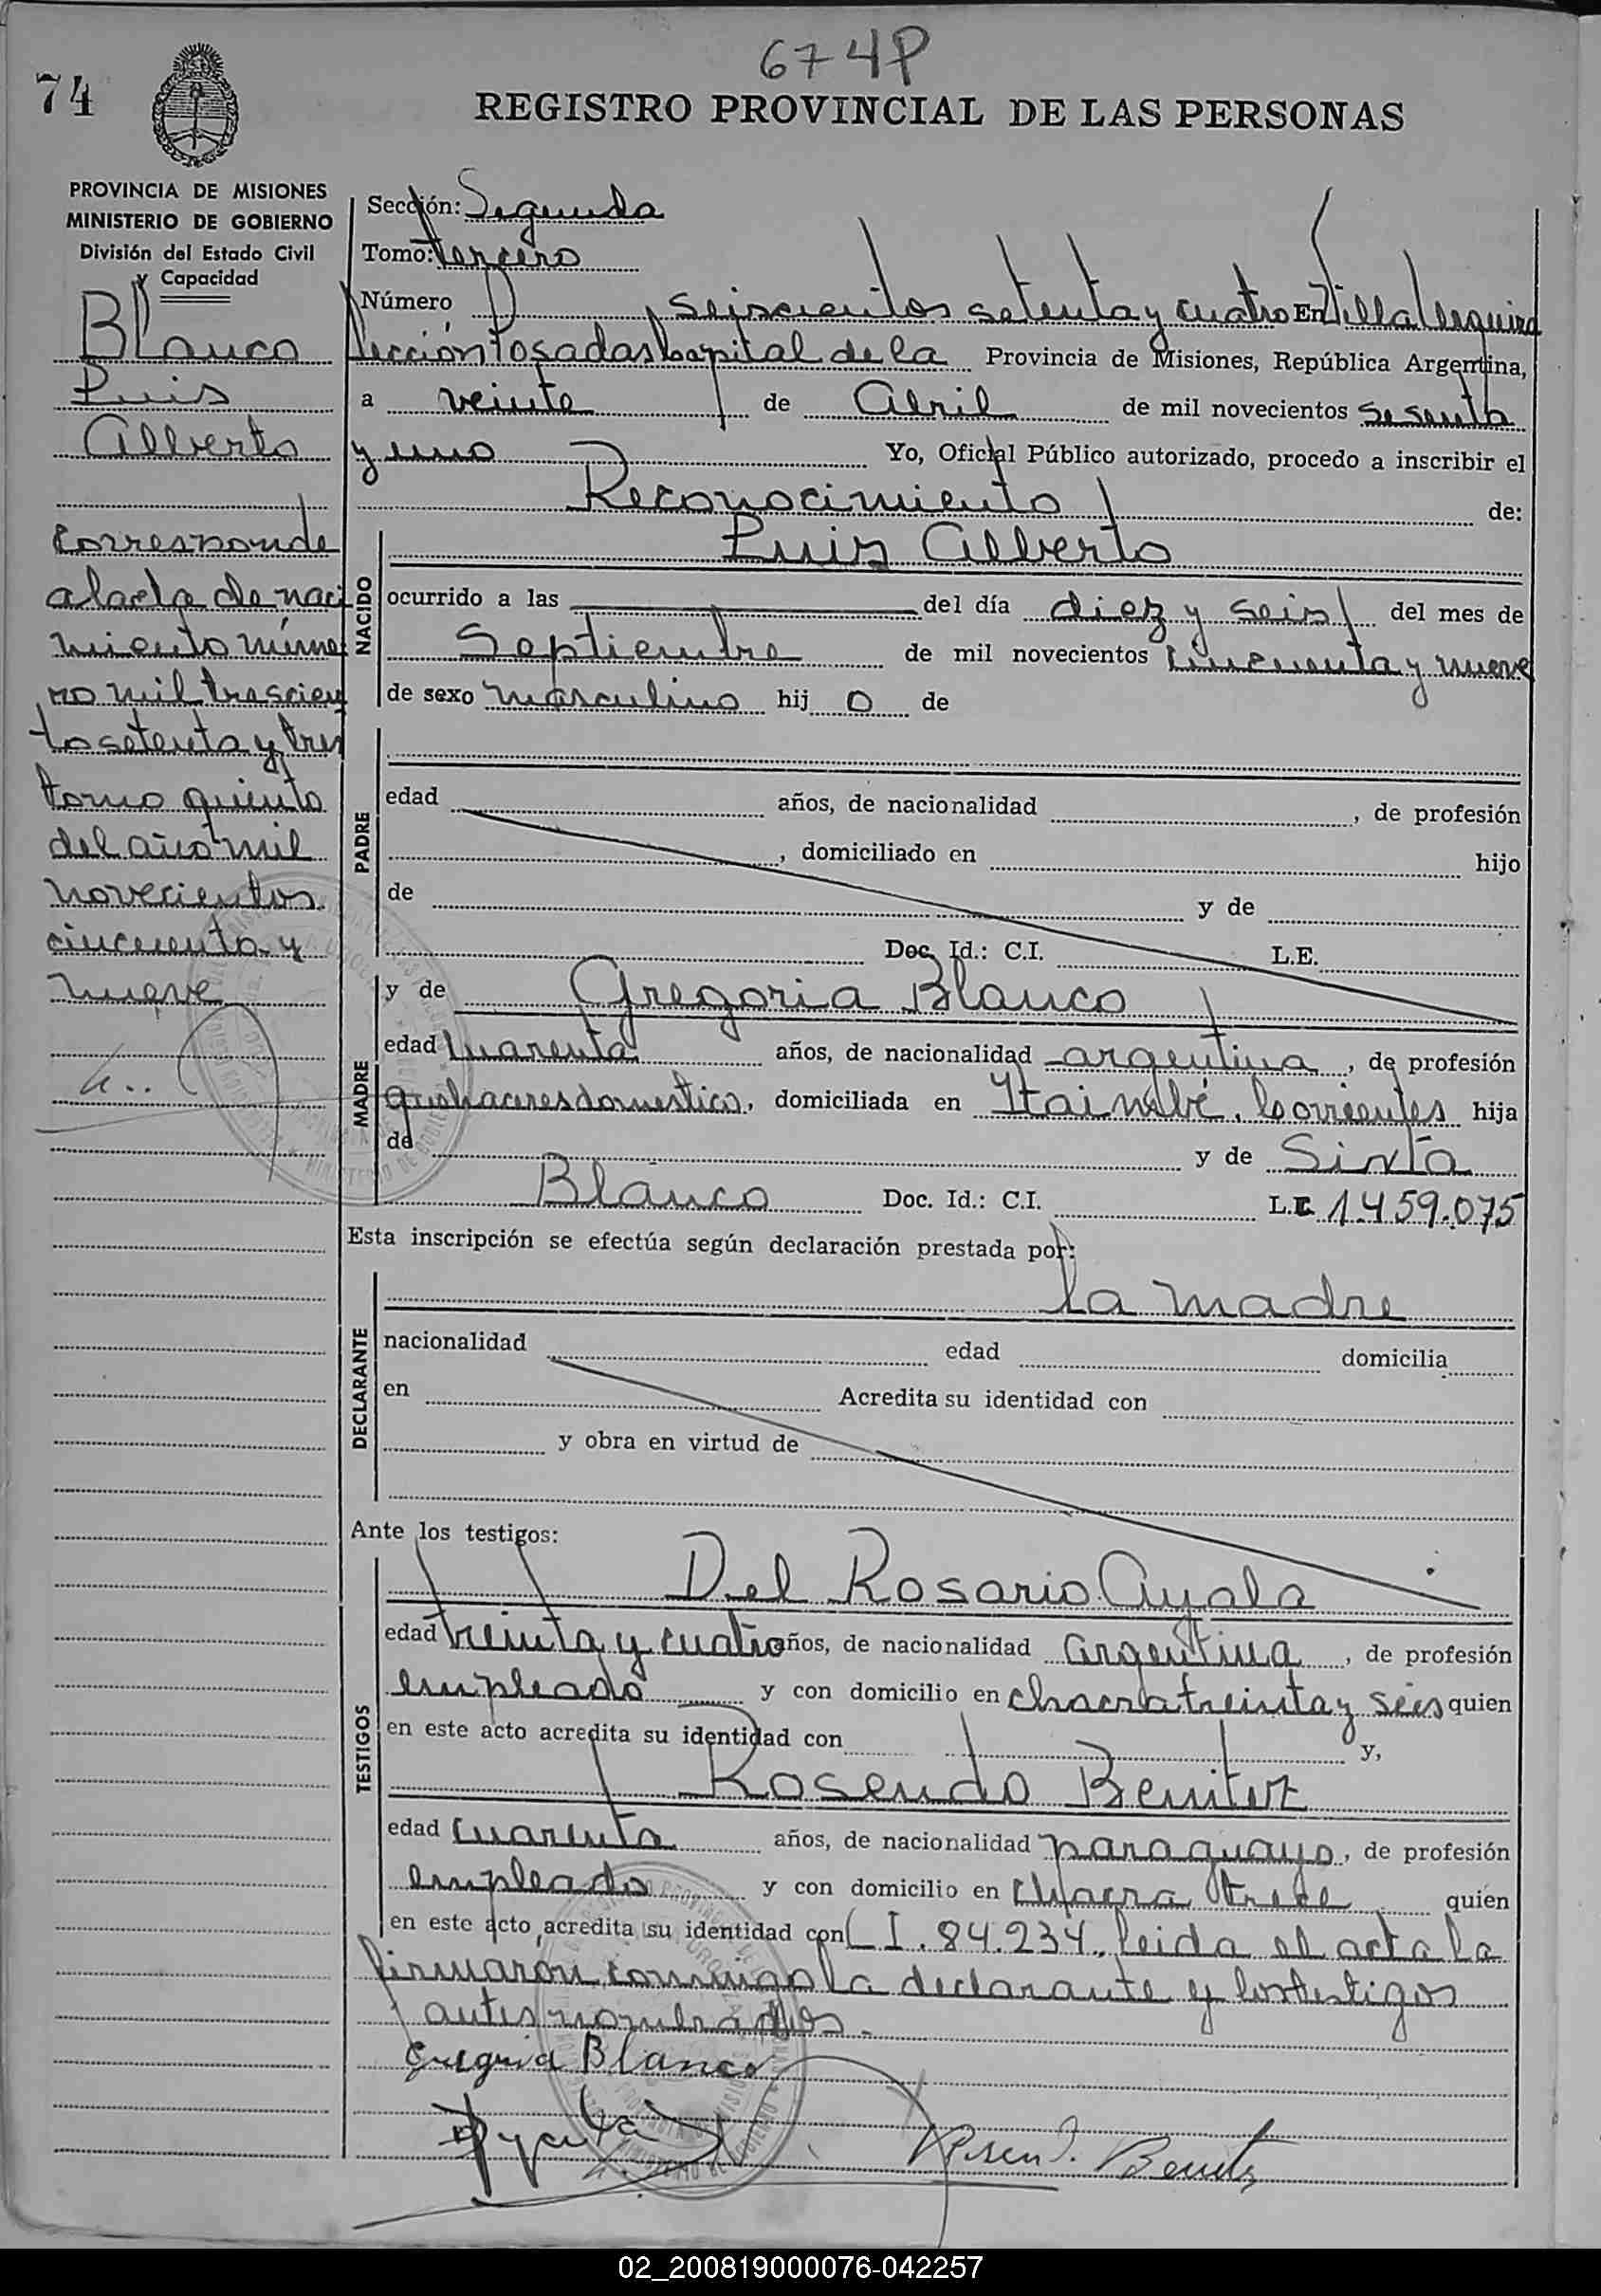 674P
74
REGISTRO PROVINCIAL DE LAS PERSONAS
PROVINCIA DE MISIONES
MINISTERIO DE GOBIERNO
División del Estado Civil
y Capacidad
Blanco
Luis
Alberto
corresponde
al acta de naci
miento núme
ro mil trescien
to setenta y tres
tomo quinto
del año mil
novecientos
cincuenta y
nueve
Sección: Segunda
Tomo: tercero
Número seiscientos setenta y cuatro En Villa Urquiza
Sección Posadas Capital de la Provincia de Misiones, República Argentina,
a veinte de Abril de mil novecientos sesenta
y uno Yo, Oficial Público autorizado, procedo a inscribir el
Reconocimiento de:
NACIDO
Luis Alberto
ocurrido a las del día diez y seis del mes de
Septiembre de mil novecientos cincuenta y nueve
de sexo masculino hij o de
PADRE
edad años, de nacionalidad , de profesión
, domiciliado en hijo
de y de
Doc. Id.: C.I. L.E.
MADRE
y de Gregoria Blanco
edad cuarenta años, de nacionalidad argentina, de profesión
quehaceres domestico, domiciliada en Itaimbé, Corrientes hija
de y de Sixta
Blanco Doc. Id.: C.I. L.C. 1.459.075
Esta inscripción se efectúa según declaración prestada por:
DECLARANTE
la madre
nacionalidad edad domicilia
en Acredita su identidad con
y obra en virtud de
Ante los testigos:
TESTIGOS
Del Rosario Ayala
edad treinta y cuatro años, de nacionalidad argentina, de profesión
empleado y con domicilio en chacra treinta y seis quien
en este acto acredita su identidad con y,
Rosendo Benitez
edad cuarenta años, de nacionalidad paraguayo, de profesión
empleado y con domicilio en chacra trece quien
en este acto acredita su identidad con C I. 84.234. leida el acta la
firmaron conmigo la declarante y los testigos
antes nombrados.
Gregoria Blanco
Rosendo Benitez
02_200819000076-042257